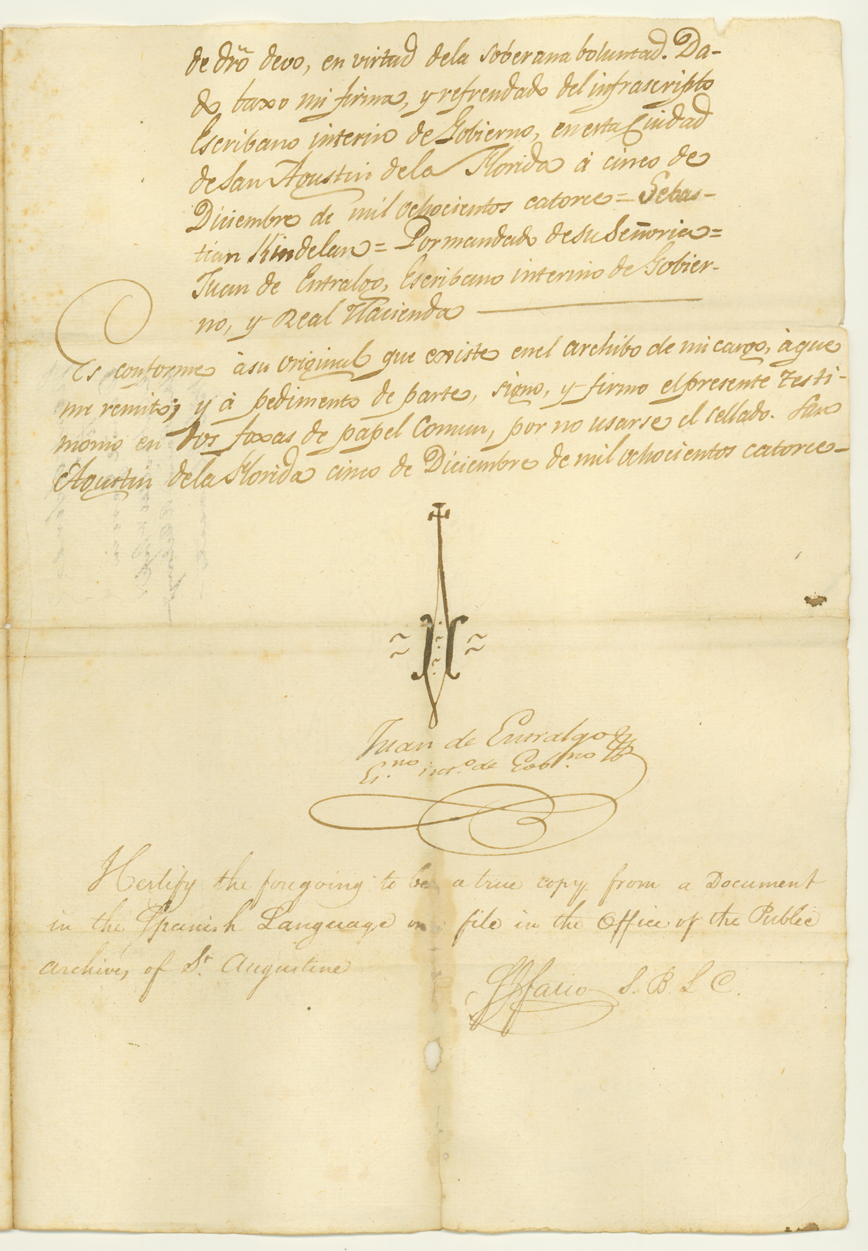 de dro devo, en virtud dela soberana boluntad. Da-
do baxo mi firma, y refrendado del infrascripto
Escribano interino de Gobierno, en esta Ciudad
de San Agustin dela Florida á cinco de
Diciembre de mil ochocientos catorce = Sebas-
tian Kindelan = Por mandado de su Señoria =
Juan de Entralgo, Escribano interino de Gobier-
no, y Real Hacienda
Es conforme à su original que existe enel archibo de mi cargo, à que
me remito; y à pedimento de parte, signo, y firmo el presente testi-
monio en dos foxas de papel Comun, por no usarse el sellado. San
Agustin dela Florida cinco de Diciembre de mil ochocientos catorce
Juan de Entralgo
Es.no int.o de Gob.no
I Certify the foregoing to be a true copy from a Document
in the Spanish Language on file in the Office of the Public
archives of St. Augustine
S. B. L C.